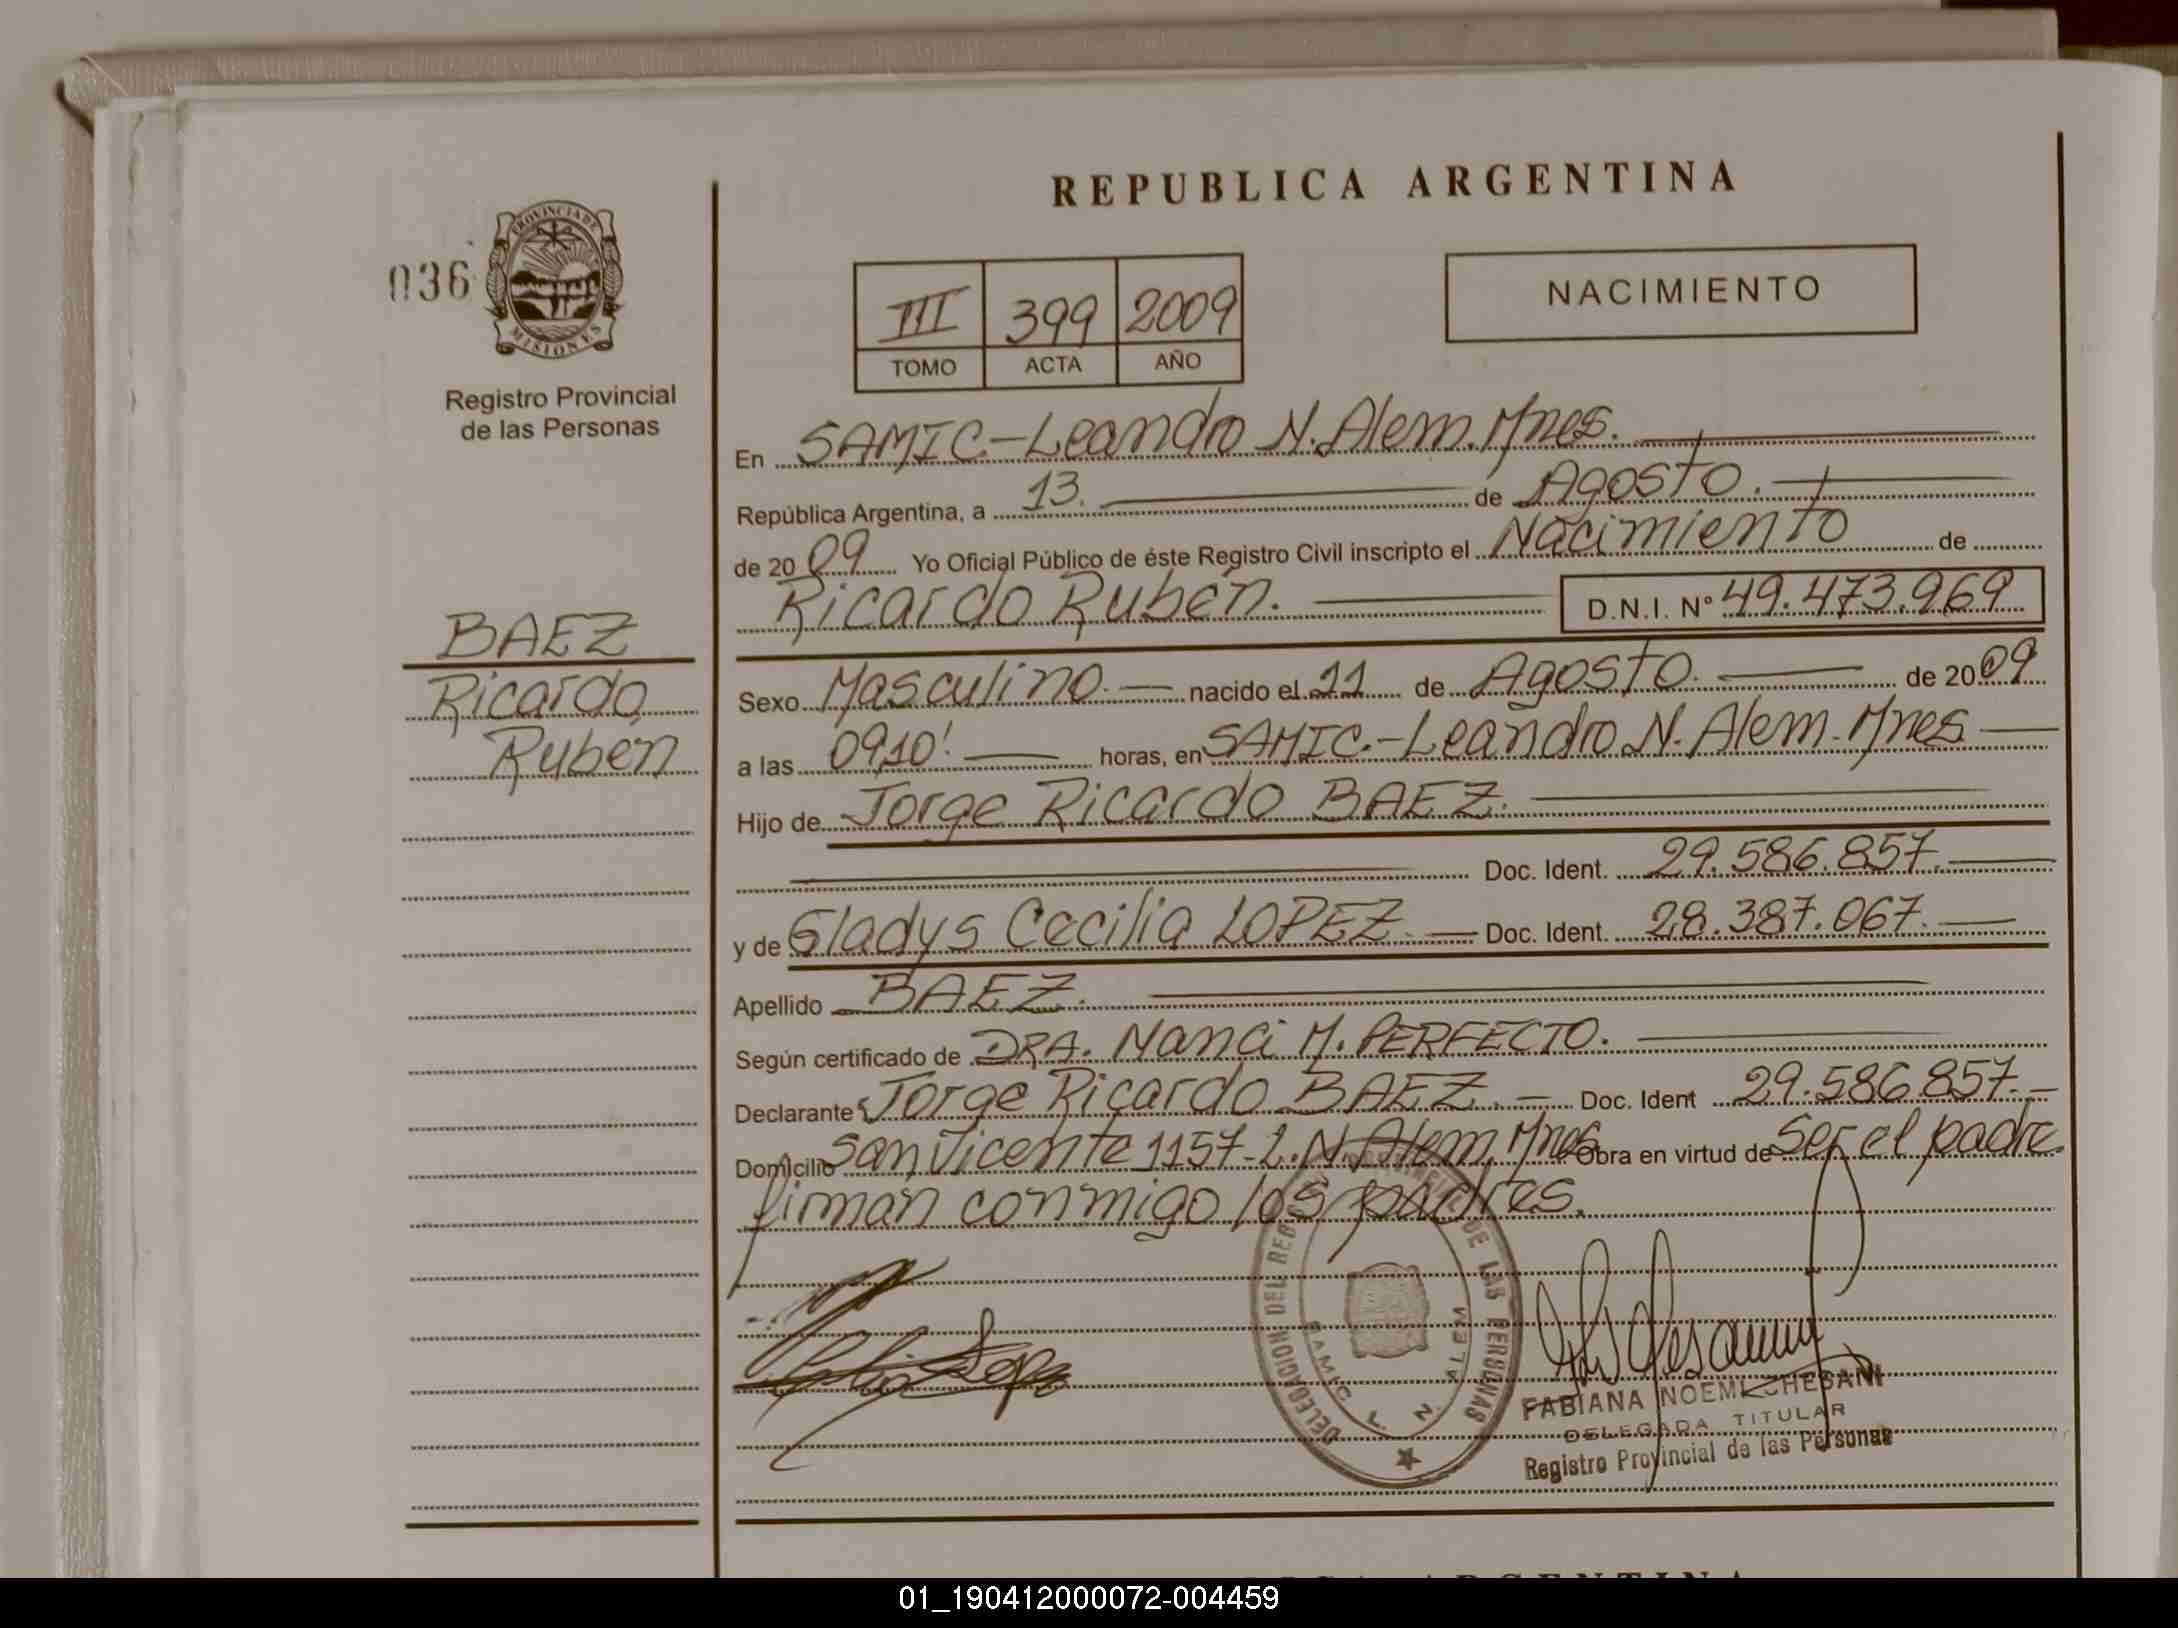 REPUBLICA ARGENTINA
036
PROVINCIA DE
MISIONES
Registro Provincial
de las Personas
III 399 2009
TOMO ACTA AÑO
NACIMIENTO
BAEZ
Ricardo
Rubén
En SAMIC-Leandro N. Alem. Mnes.
República Argentina, a 13. de Agosto.
de 2009 Yo Oficial Público de éste Registro Civil inscripto el Nacimiento de
Ricardo Rubén. D.N.I. N° 49.473.969
Sexo Masculino. nacido el 11 de Agosto. de 2009
a las 09,10' horas, en SAMIC.-Leandro N. Alem. Mnes
Hijo de Jorge Ricardo BAEZ.
Doc. Ident. 29.586.857.
y de Gladys Cecilia LOPEZ. Doc. Ident. 28.387.067.
Apellido BAEZ.
Según certificado de DRA. Nanci M. PERFECTO.
Declarante Jorge Ricardo BAEZ. Doc. Ident 29.586.857.
Domicilio San Vicente 1157-L.N.Alem. Mnes. Obra en virtud de Ser el padre.
firman conmigo los padres.
DELEGACION DEL REGISTRO PROVINCIAL DE LAS PERSONAS
SAMIC L. N. ALEM
FABIANA NOEMI CHESANI
DELEGADA TITULAR
Registro Provincial de las Personas
01_190412000072-004459